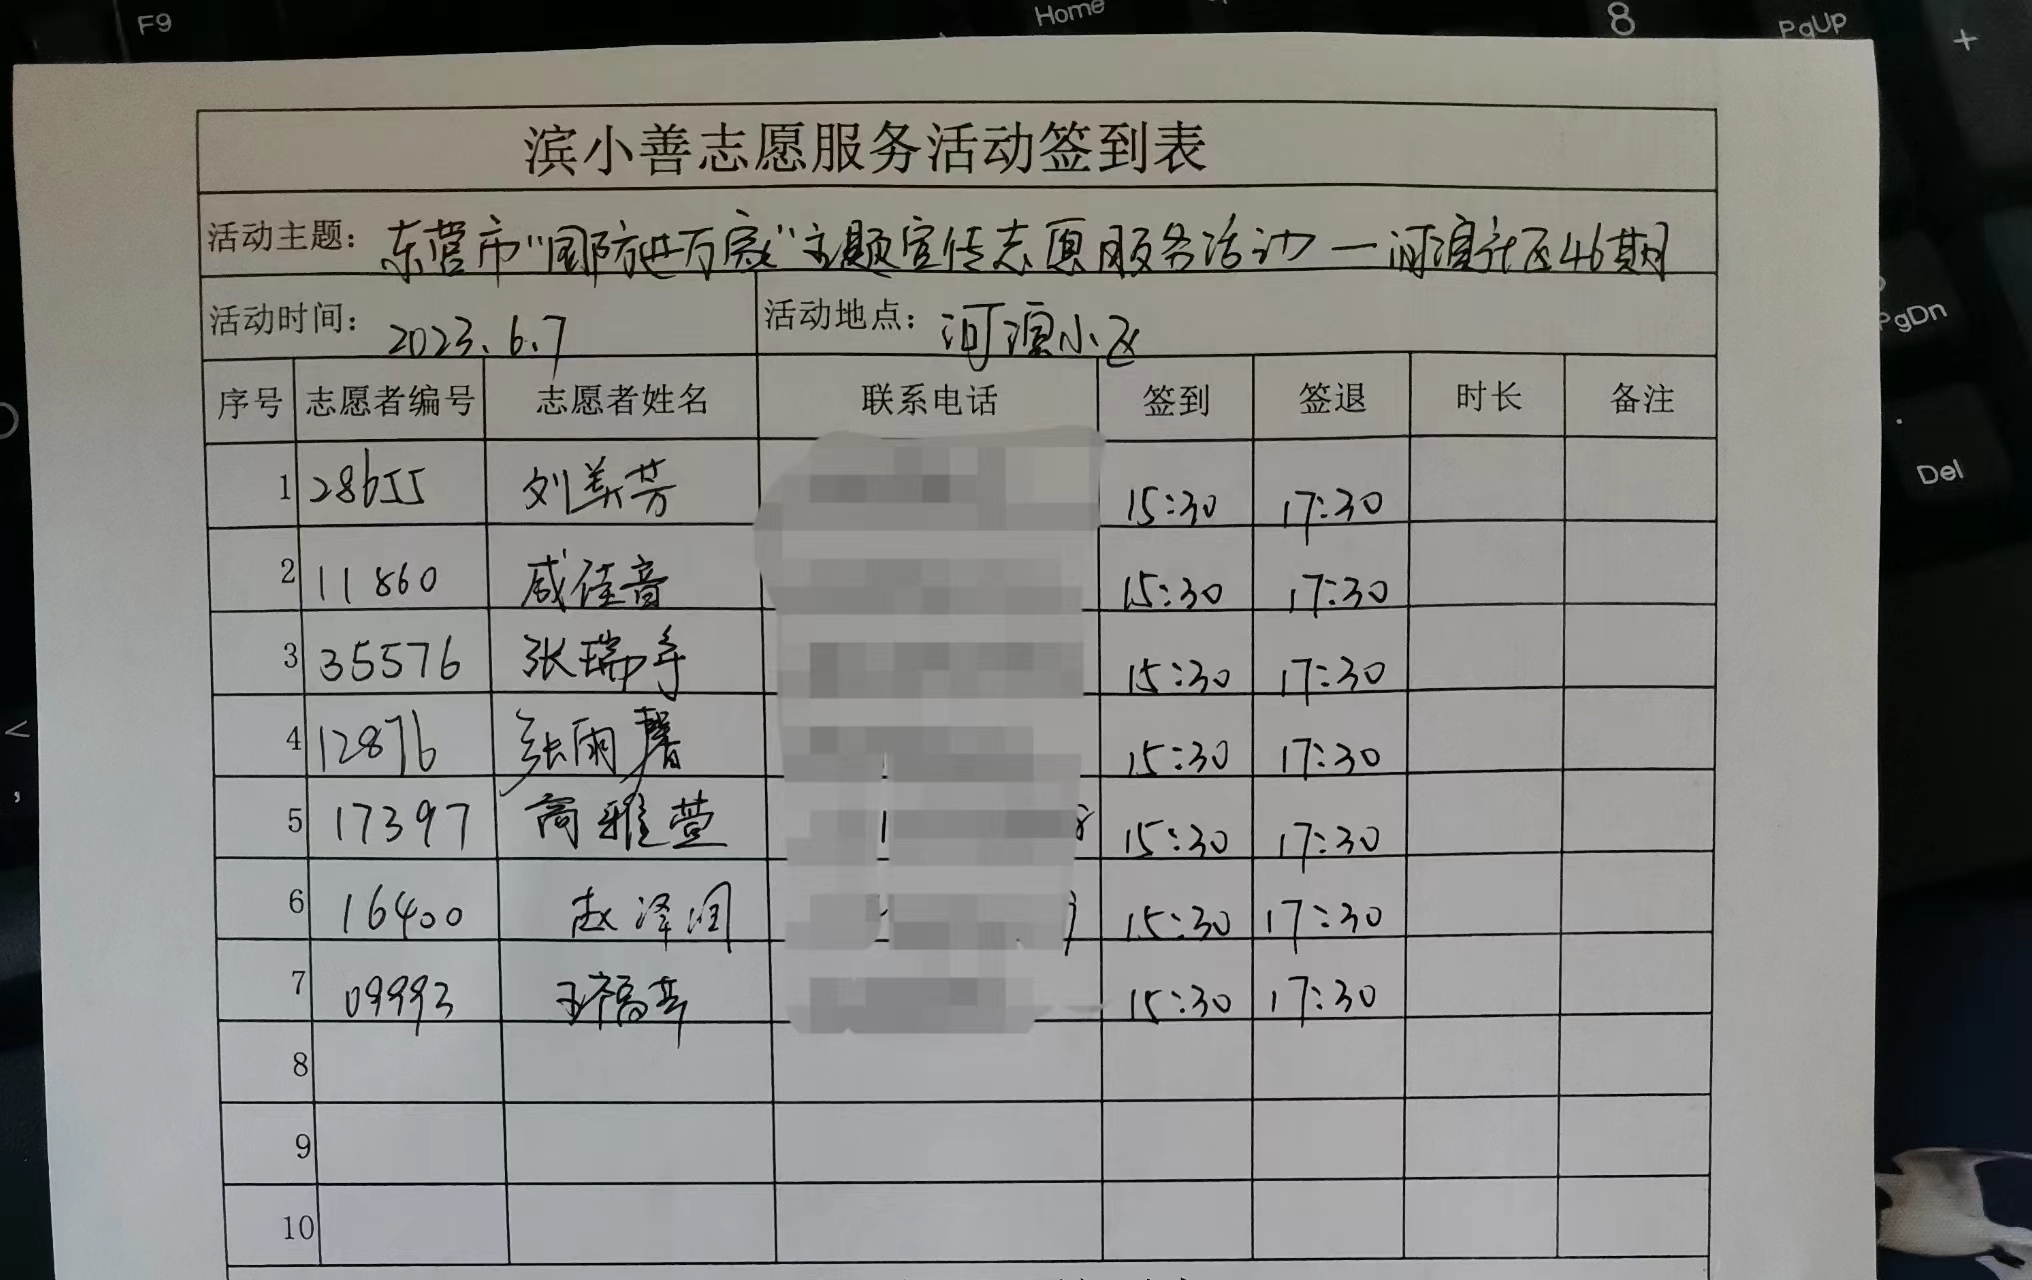 F9 Home 8 PgUp +
滨小善志愿服务活动签到表
活动主题: 东营市"国防进万家"主题宣传志愿服务活动—河滨社区46期
活动时间: 2023.6.7 活动地点: 河滨小区
PgDn
序号 志愿者编号 志愿者姓名 联系电话 签到 签退 时长 备注
Del
1 28655 刘美芳 15:30 17:30
2 11860 咸佳音 15:30 17:30
3 35576 张瑞 15:30 17:30
<
4 12876 张雨馨 15:30 17:30
,
5 17397 高雅萱 15:30 17:30
6 16400 赵泽润 15:30 17:30
7 09993 15:30 17:30
8
9
10